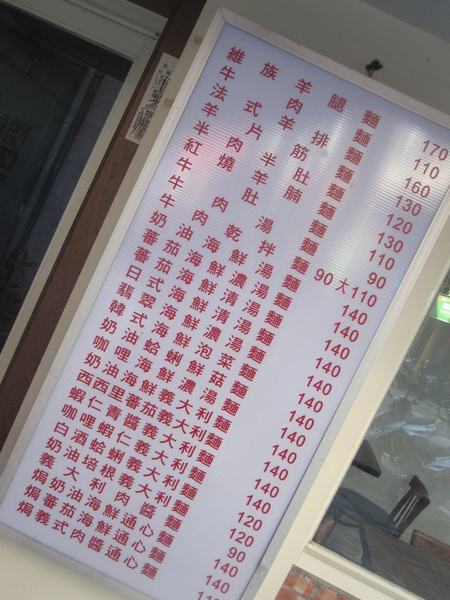 維族羊腿麵 170
牛肉麵 110
法式羊排麵 160
羊肉片麵 130
半筋半肚麵 120
紅燒羊腩麵 130
牛肚麵 110
牛肉湯麵 90
牛肉乾拌麵 90大110
奶油海鮮濃湯麵 140
蕃茄海鮮清湯麵 140
蕃茄海鮮濃湯麵 140
日式海鮮清湯麵 140
翡翠海鮮濃湯麵 140
韓式海鮮泡菜麵 140
奶油蛤蜊菇麵 140
咖哩海鮮濃湯麵 140
奶油海鮮義大利麵 140
西西里蕃茄義大利麵 140
蝦仁青醬義大利麵 140
咖哩蝦仁義大利麵 140
白酒蛤蜊義大利麵 140
奶油培根義大利麵 120
義大利肉醬麵 90
焗奶油海鮮通心麵 140
焗蕃茄海鮮通心麵 140
焗義式肉醬通心麵 110